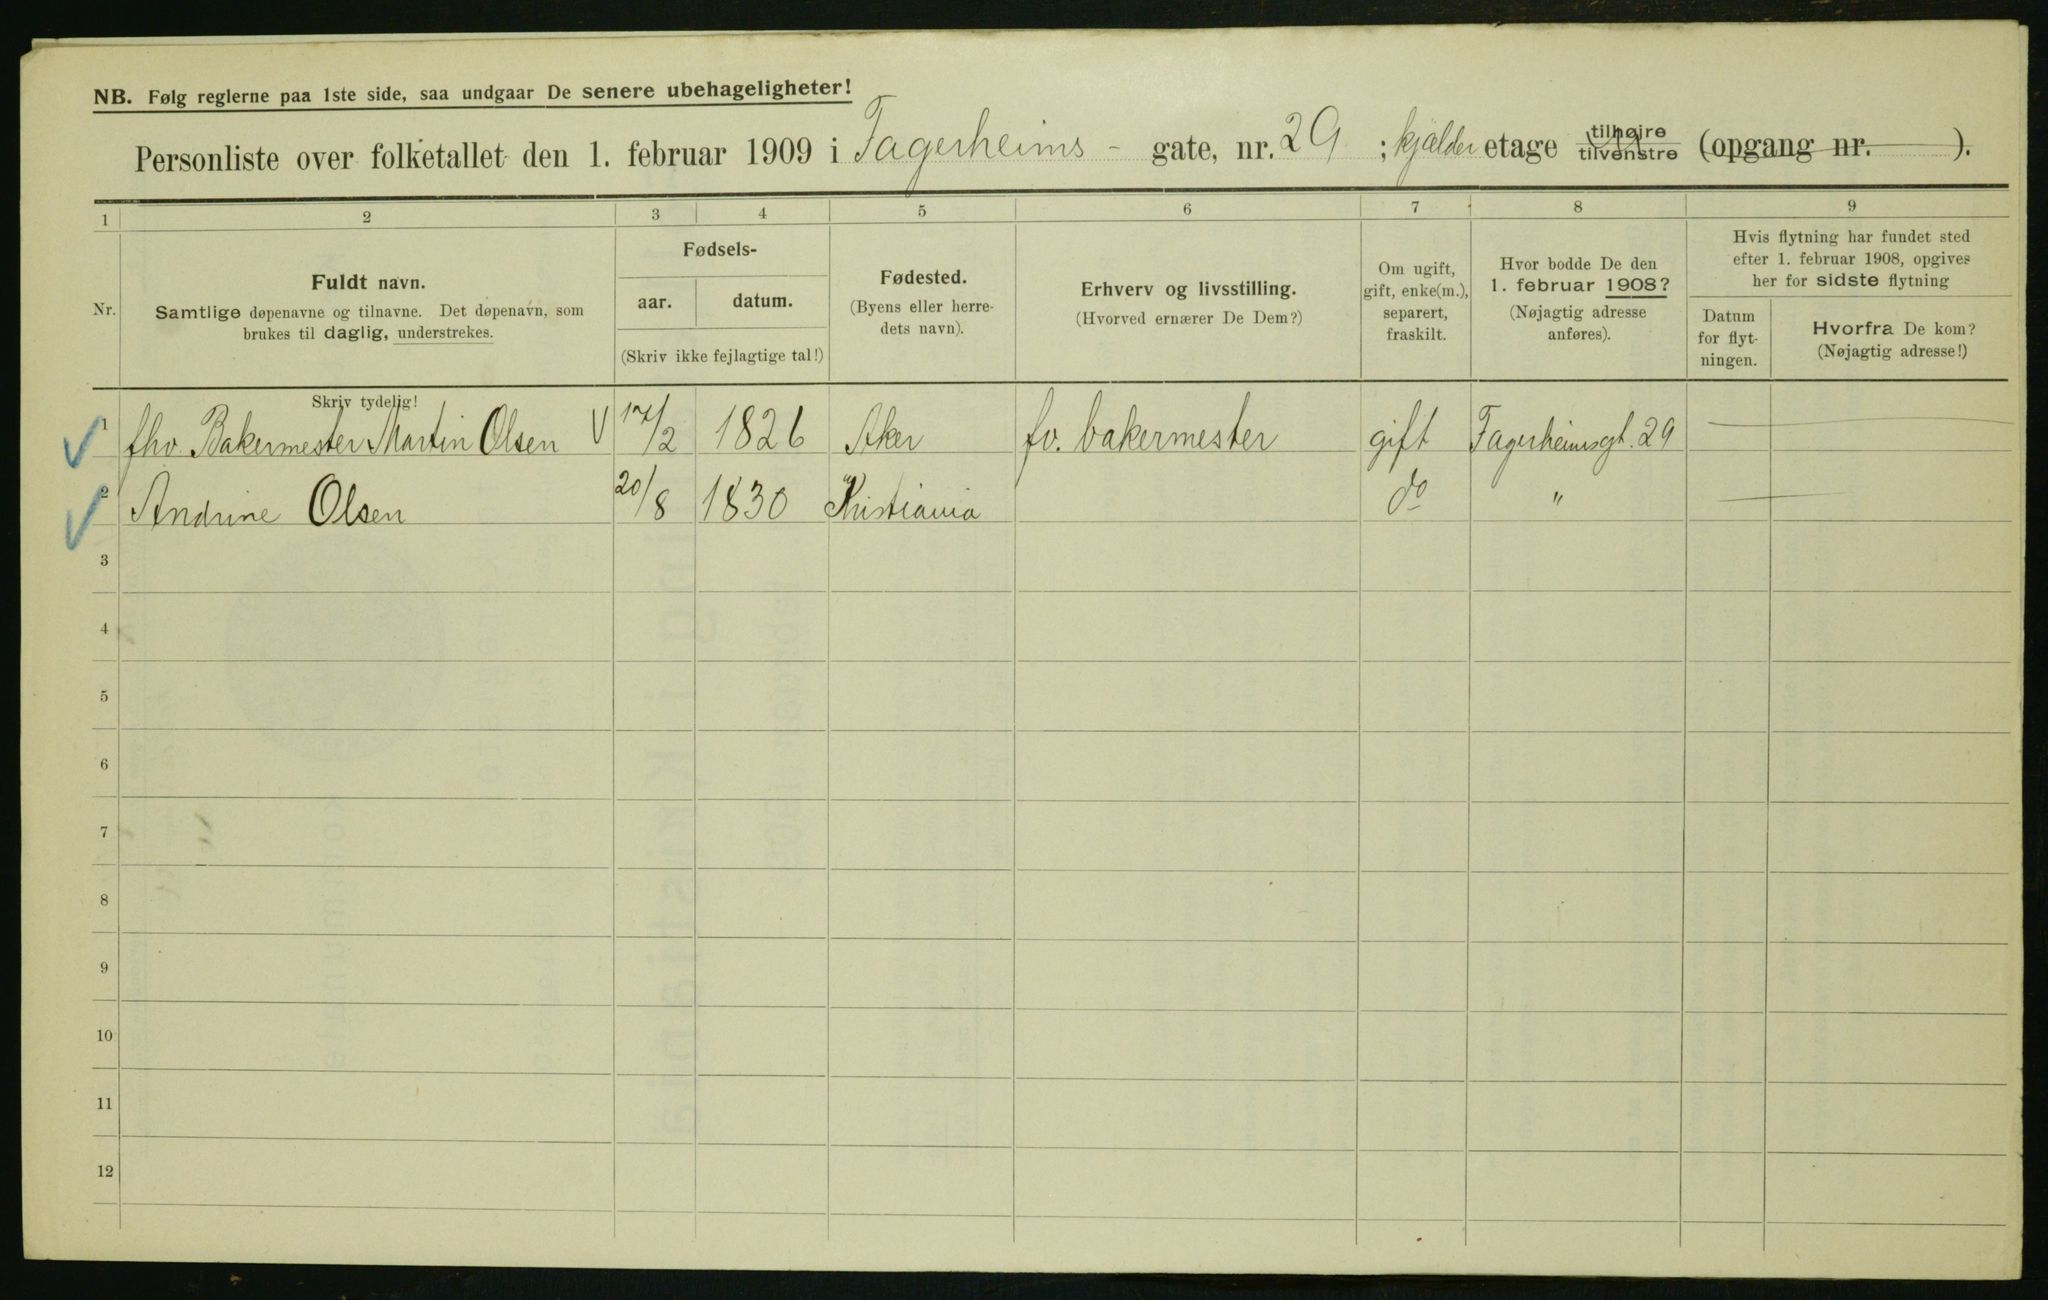 NB. Følg reglerne paa 1ste side, saa undgaar De senere ubehageligheter!
Personliste over folketallet den 1. februar 1909 i Fagerheims - gate, nr. 29 ; kjælder etage tilhøire tilvenstre (opgang nr. ).
1 2 3 4 5 6 7 8 9
Nr.
Fuldt navn.
Samtlige døpenavne og tilnavne. Det døpenavn, som
brukes til daglig, understrekes.
Fødsels-
aar. datum.
(Skriv ikke fejlagtige tal!)
Fødested.
(Byens eller herre-
dets navn).
Erhverv og livsstilling.
(Hvorved ernærer De Dem?)
Om ugift,
gift, enke(m.),
separert,
fraskilt.
Hvor bodde De den
1. februar 1908?
(Nøjagtig adresse
anføres).
Hvis flytning har fundet sted
efter 1. februar 1908, opgives
her for sidste flytning
Datum
for flyt-
ningen.
Hvorfra De kom?
(Nøjagtig adresse!)
Skriv tydelig!
1 fhv. Bakermester Martin Olsen 17/2 1826 Aker fv. bakermester gift Fagerheimsgt. 29 —
2 Andrine Olsen 20/8 1830 Kristiania do " —
3
4
5
6
7
8
9
10
11
12